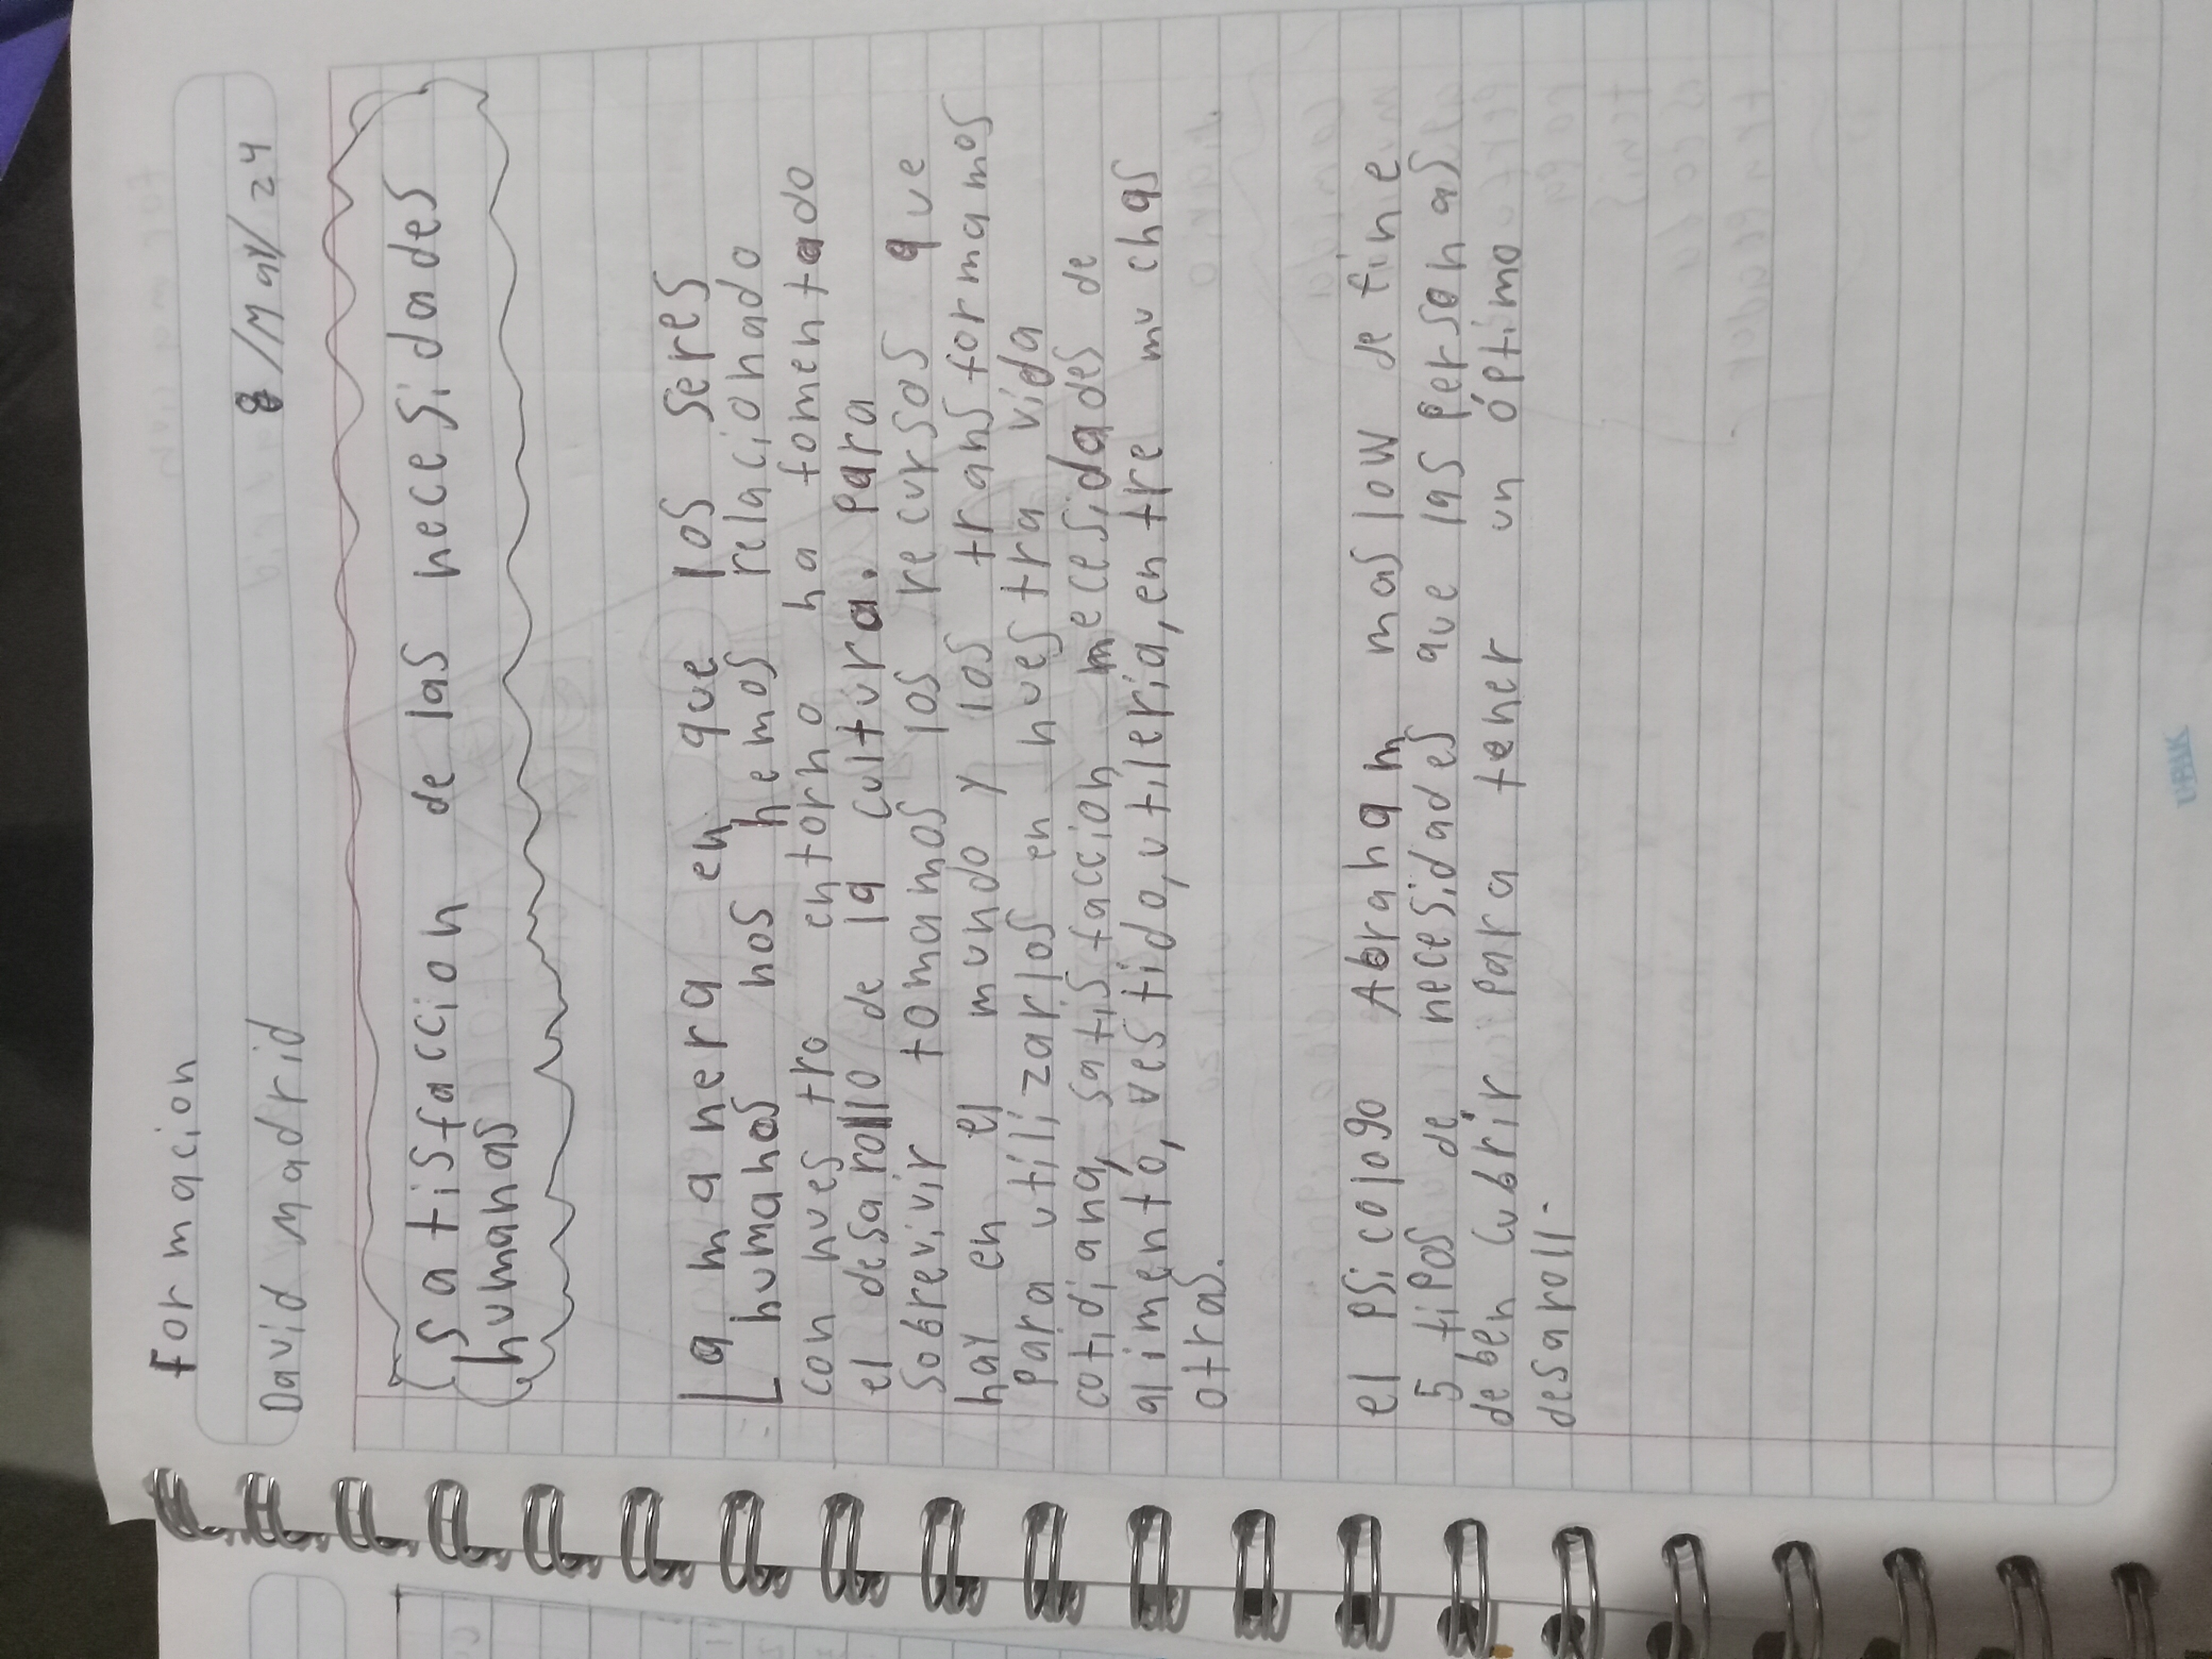 Formacion
David Madrid 8/May/24
Satisfaccion de las necesidades
humanas
La manera en que los seres
humanos nos hemos relacionado
con nuestro entorno ha fomentado
el desarollo de la cultura. Para
sobrevivir tomamos los recursos que
hay en el mundo y los transformamos
Para utilizarlos en nuestra vida
cotidiana, satisfaccion necesidades de
alimento, vestido, utileria, entre muchas
otras.
el Psicologo Abraham maslow define
5 tipos de necesidades que las personas
deben cubrir para tener un óptimo
desaroll.